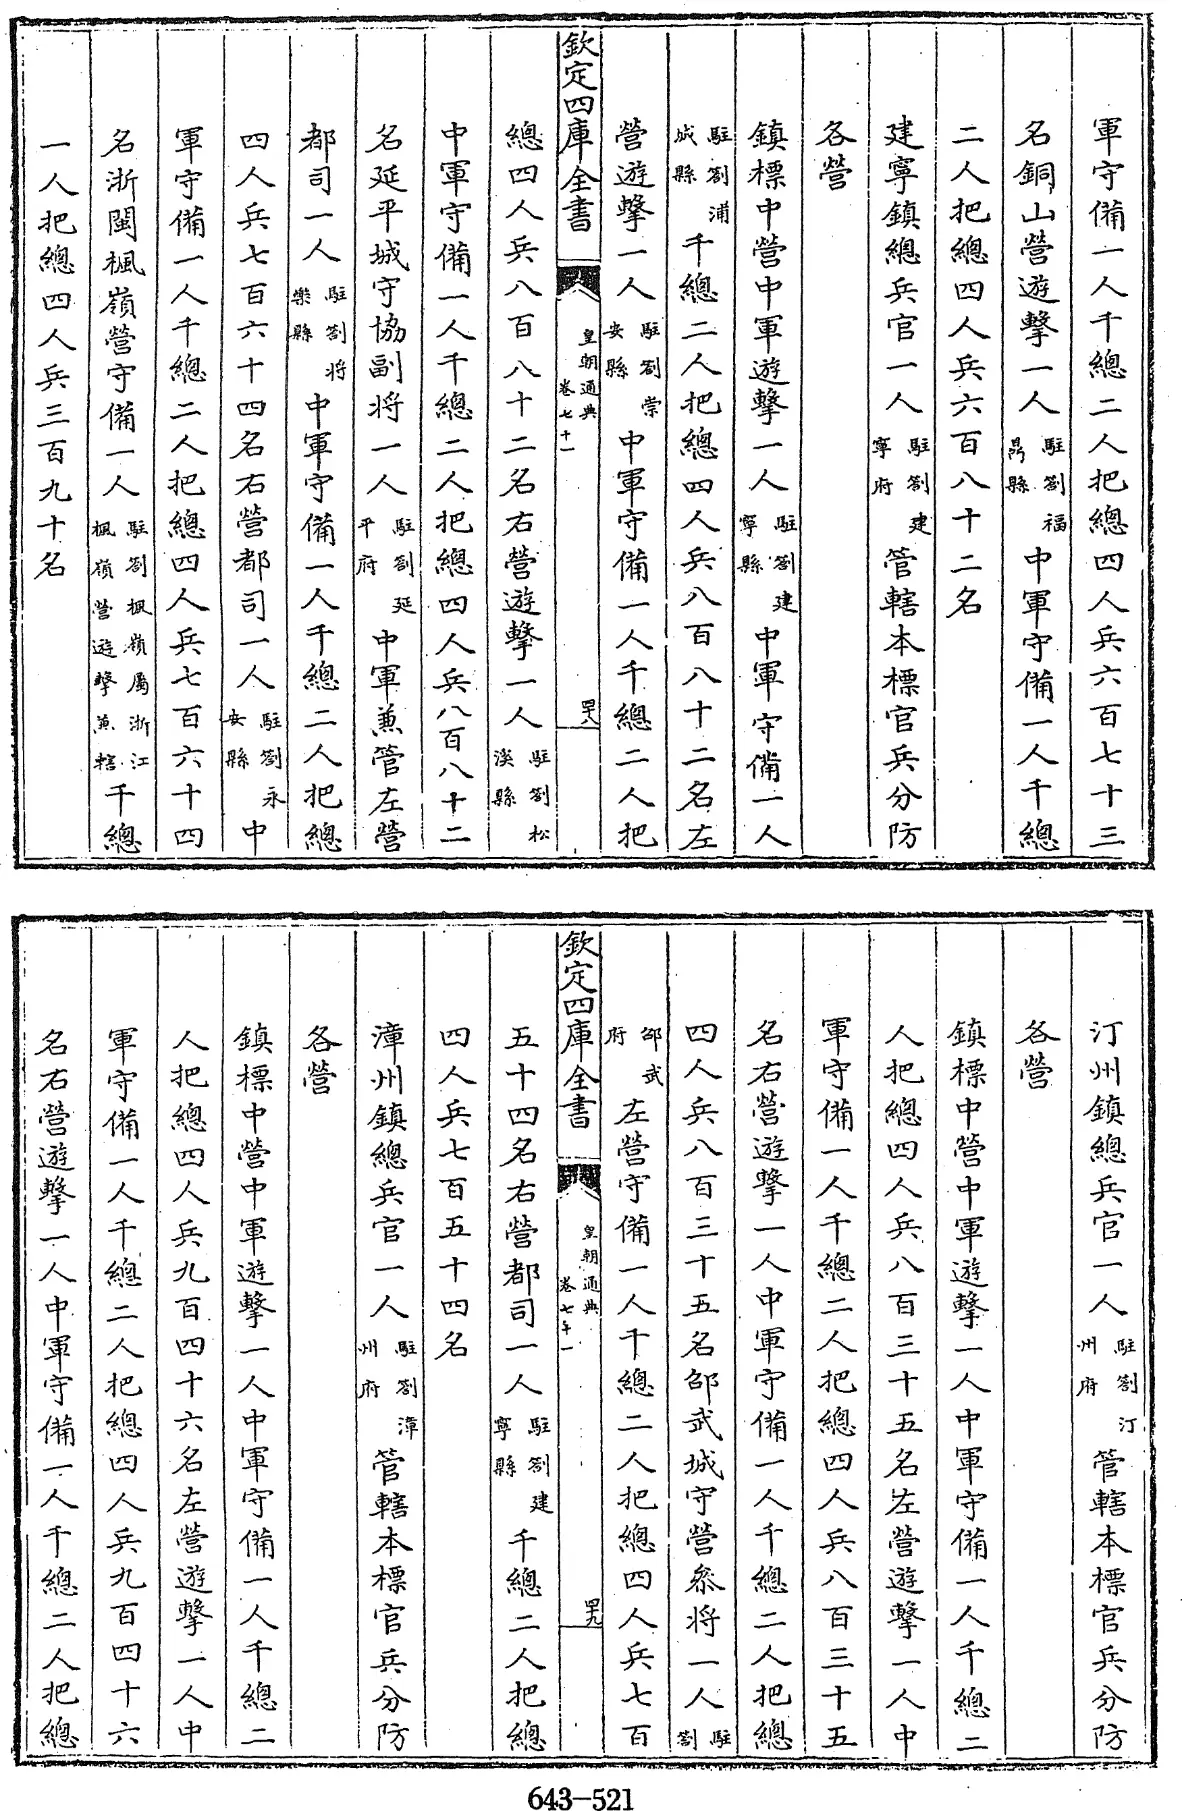 軍守備一人千總二人把總四人兵六百七十三
名銅山營遊擊一人駐劄福鼎縣中軍守備一人千總
二人把總四人兵六百八十二名
建寧鎮總兵官一人駐劄建寧府管轄本標官兵分防
各營
鎮標中營中軍遊擊一人駐劄建寧縣中軍守備一人
駐劄浦城縣千總二人把總四人兵八百八十二名左
營遊擊一人駐劄崇安縣中軍守備一人千總二人把
欽定四庫全書 皇朝通典卷七十一 四八
總四人兵八百八十二名右營遊擊一人駐劄松溪縣
中軍守備一人千總二人把總四人兵八百八十二
名延平城守協副將一人駐劄延平府中軍兼管左營
都司一人駐劄將樂縣中軍守備一人千總二人把總
四人兵七百六十四名右營都司一人駐劄永安縣中
軍守備一人千總二人把總四人兵七百六十四
名浙閩楓嶺營守備一人駐劄楓嶺屬浙江楓嶺營遊擊兼轄千總
一人把總四人兵三百九十名
汀州鎮總兵官一人駐劄汀州府管轄本標官兵分防
各營
鎮標中營中軍遊擊一人中軍守備一人千總二
人把總四人兵八百三十五名左營遊擊一人中
軍守備一人千總二人把總四人兵八百三十五
名右營遊擊一人中軍守備一人千總二人把總
四人兵八百三十五名邵武城守營叅將一人駐劄
邵武府左營守備一人千總二人把總四人兵七百
欽定四庫全書 皇朝通典卷七十一 四九
五十四名右營都司一人駐劄建寧縣千總二人把總
四人兵七百五十四名
漳州鎮總兵官一人駐劄漳州府管轄本標官兵分防
各營
鎮標中營中軍遊擊一人中軍守備一人千總二
人把總四人兵九百四十六名左營遊擊一人中
軍守備一人千總二人把總四人兵九百四十六
名右營遊擊一人中軍守備一人千總二人把總
643-521